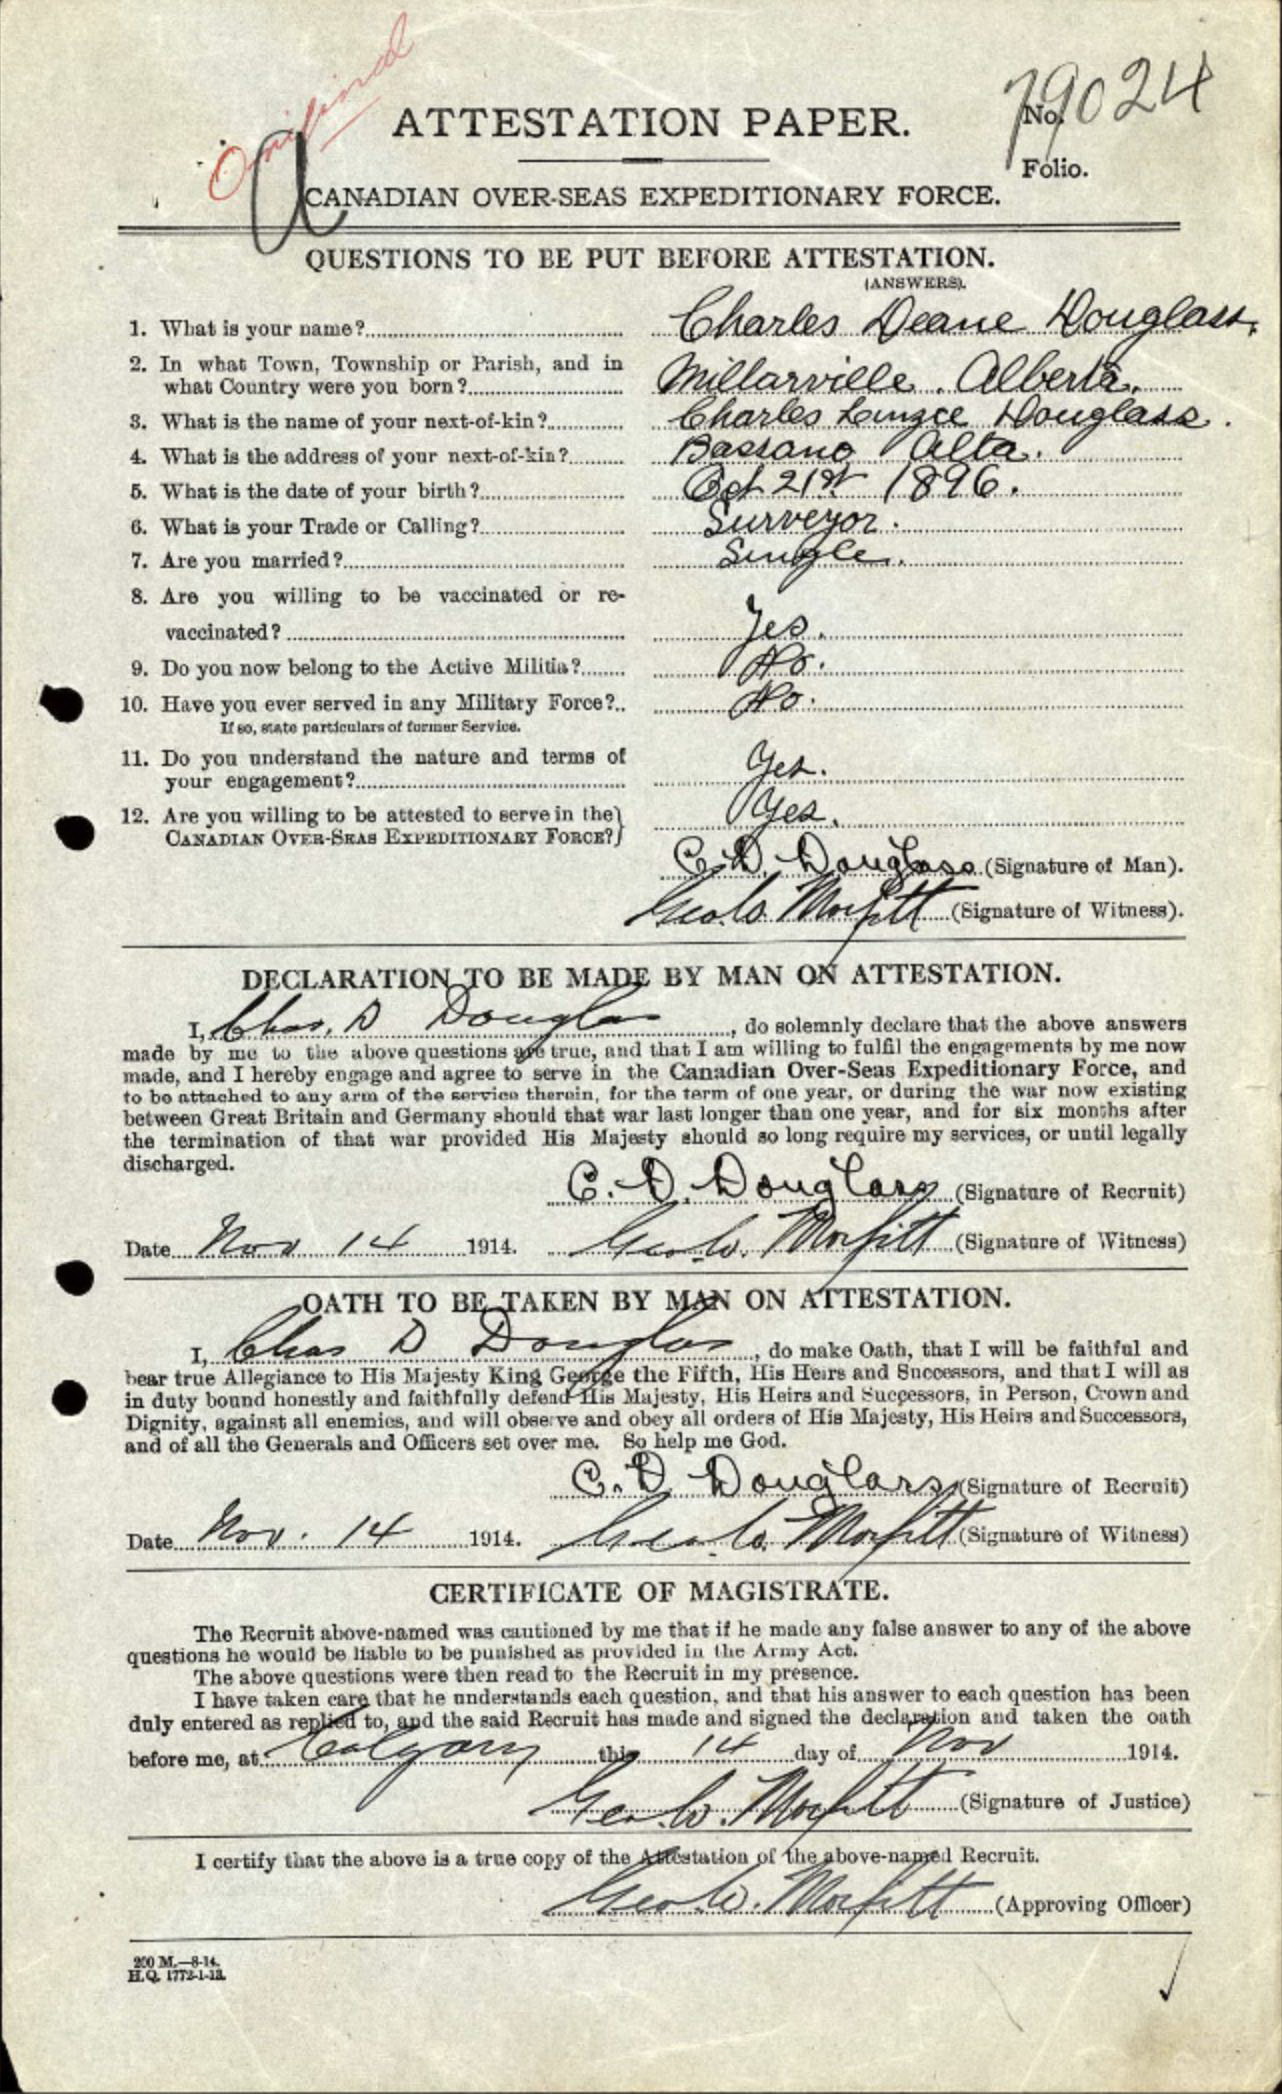 Original
79024
ATTESTATION PAPER.
No.
Folio.
a
CANADIAN OVER-SEAS EXPEDITIONARY FORCE.
QUESTIONS TO BE PUT BEFORE ATTESTATION.
(ANSWERS).
1. What is your name? Charles Deane Douglass.
2. In what Town, Township or Parish, and in
what Country were you born? Millarville. Alberta.
3. What is the name of your next-of-kin? Charles Douglass.
4. What is the address of your next-of-kin? Bassano Alta.
5. What is the date of your birth? Oct 21st 1896.
6. What is your Trade or Calling? Surveyor.
7. Are you married? Single.
8. Are you willing to be vaccinated or re-
vaccinated? Yes.
9. Do you now belong to the Active Militia? No.
10. Have you ever served in any Military Force? No.
If so, state particulars of former Service.
11. Do you understand the nature and terms of
your engagement? Yes.
12. Are you willing to be attested to serve in the
CANADIAN OVER-SEAS EXPEDITIONARY FORCE? Yes.
C. D. Douglass (Signature of Man).
Geo. W. Morfitt (Signature of Witness).
DECLARATION TO BE MADE BY MAN ON ATTESTATION.
I, Chas. D Douglas, do solemnly declare that the above answers
made by me to the above questions are true, and that I am willing to fulfil the engagements by me now
made, and I hereby engage and agree to serve in the Canadian Over-Seas Expeditionary Force, and
to be attached to any arm of the service therein, for the term of one year, or during the war now existing
between Great Britain and Germany should that war last longer than one year, and for six months after
the termination of that war provided His Majesty should so long require my services, or until legally
discharged.
C. D. Douglass (Signature of Recruit)
Date Nov 14 1914. Geo. W. Morfitt (Signature of Witness)
OATH TO BE TAKEN BY MAN ON ATTESTATION.
I, Chas D Douglas, do make Oath, that I will be faithful and
bear true Allegiance to His Majesty King George the Fifth, His Heirs and Successors, and that I will as
in duty bound honestly and faithfully defend His Majesty, His Heirs and Successors, in Person, Crown and
Dignity, against all enemies, and will observe and obey all orders of His Majesty, His Heirs and Successors,
and of all the Generals and Officers set over me. So help me God.
C. D Douglass (Signature of Recruit)
Date Nov. 14 1914. Geo. W. Morfitt (Signature of Witness)
CERTIFICATE OF MAGISTRATE.
The Recruit above-named was cautioned by me that if he made any false answer to any of the above
questions he would be liable to be punished as provided in the Army Act.
The above questions were then read to the Recruit in my presence.
I have taken care that he understands each question, and that his answer to each question has been
duly entered as replied to, and the said Recruit has made and signed the declaration and taken the oath
before me, at Calgary this 14 day of Nov 1914.
Geo. W. Morfitt (Signature of Justice)
I certify that the above is a true copy of the Attestation of the above-named Recruit.
Geo. W. Morfitt (Approving Officer)
200 M.—8-14.
H.Q. 1772-1-13.